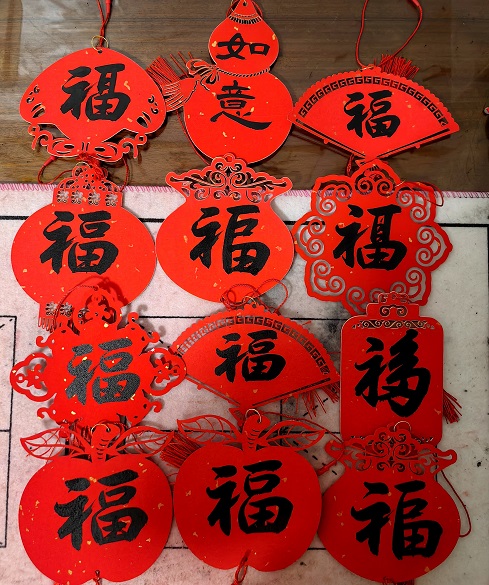 福
如
意
福
福
福
福
福
福
福
福
福
福